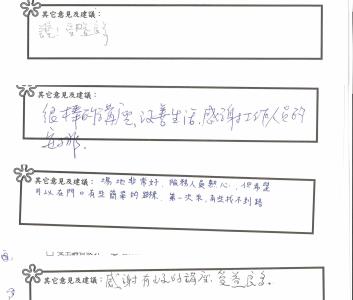 其它意見及建議：
讚！受益良多
其它意見及建議：
很棒的講座，改善生活，感謝工作人員的
安排。
其它意見及建議：場地非常好，服務人員熱心，但希望
可以在門口有些簡單的路標，第一次來，有些找不到路
其它意見及建議：感謝有這麼好的講座，受益良多。